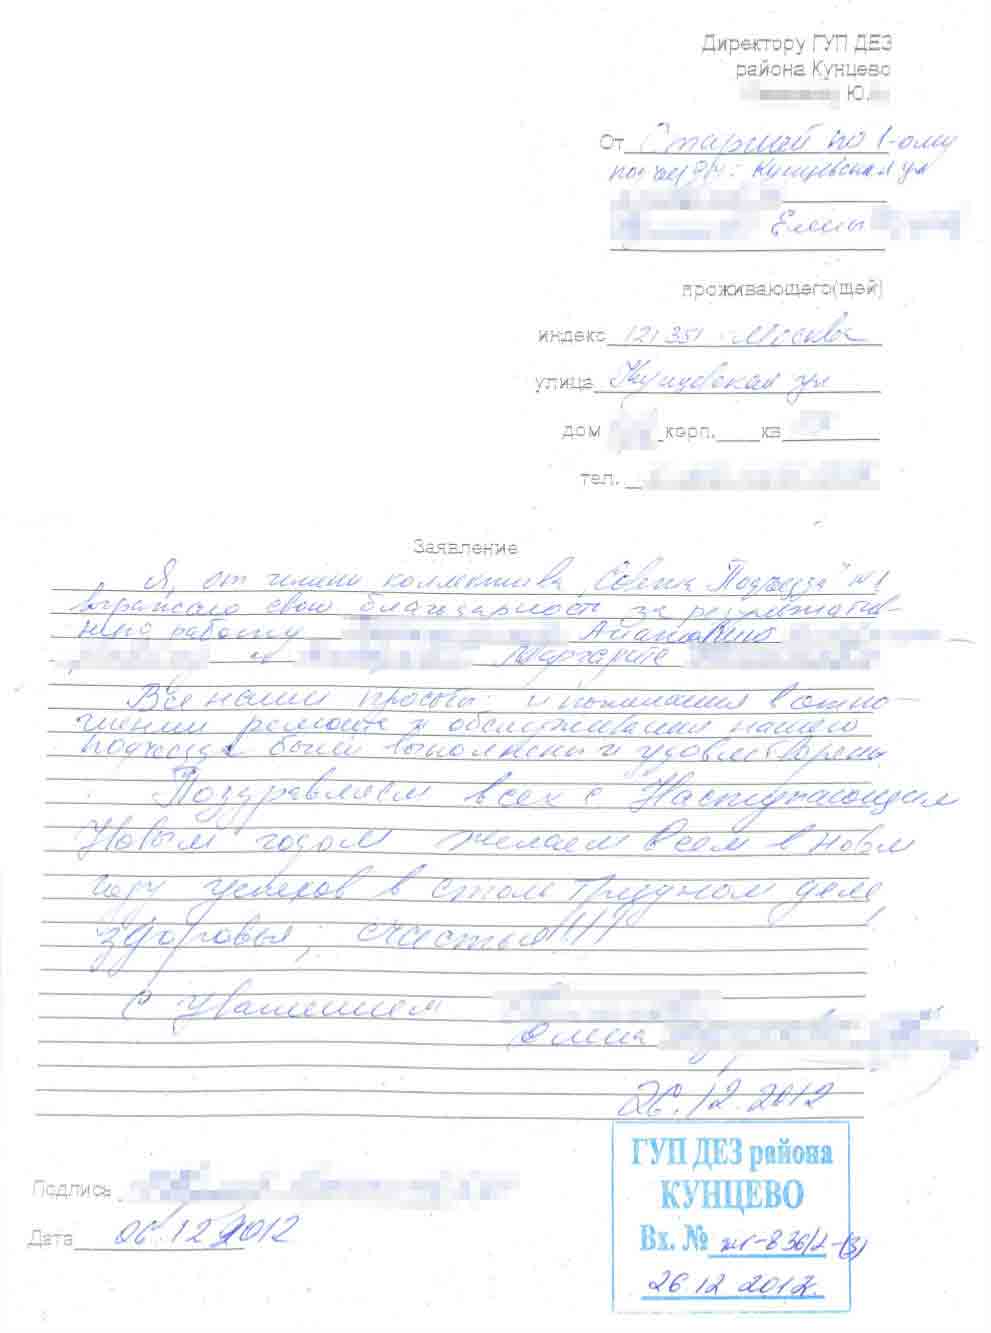 Директору ГУП ДЕЗ
района Кунцево
Ю.
От Старшей по 1-ому
Кунцевская ул
Елены
проживающего(щей)
индекс 121351 Москва
улица Кунцевская ул
дом корп. кв
тел.
Заявление
Я, от имени коллектива Совета "Подъезда" №1
выражаю свою благодарность за результатив-
ную работу
и Маргарите
Все наши просьбы и пожелания в отно-
шении ремонта и обслуживания нашего
подъезда были выполнены и удовлетворены.
Поздравляем всех с Наступающим
Новым годом желаем всем в новом
году успехов в столь трудном деле
здоровья, счастья!!!
С Уважением
Елена
26.12.2012
ГУП ДЕЗ района
КУНЦЕВО
Вх. №
26 12 2012
Подпись
Дата 06.12 2012